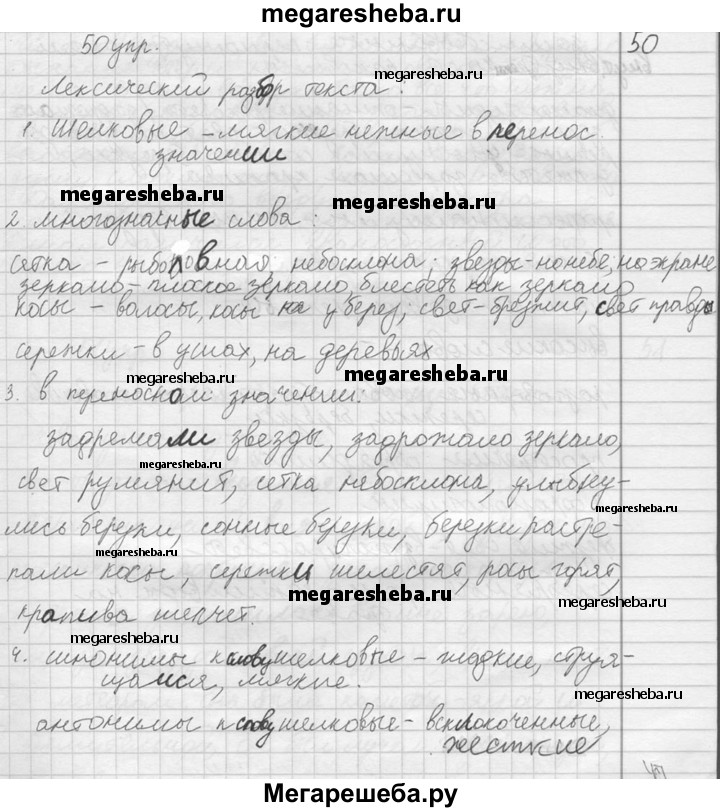 megaresheba.ru
50 упр.
50
Лексический разбор текста.
megaresheba.ru
megaresheba.ru
1. Шелковые – мягкие нежные в перенос.
значении
megaresheba.ru
megaresheba.ru
2. многозначные слова:
сетка – рыболовная, небосклона; звезды – на небе, на экране
зеркало – плоское зеркало, блестеть как зеркало
косы – волосы, косы на у берез; свет – брезжит, свет правды
сережки – в ушах, на деревьях
megaresheba.ru
megaresheba.ru
3. в переносном значении:
megaresheba.ru
задремали звезды, задрожало зеркало,
megaresheba.ru
свет румянит, сетка небосклона, улыбну-
megaresheba.ru
лись березки, сонные березки, березки растре-
megaresheba.ru
пали косы, сережки шелестят, росы горят,
megaresheba.ru
megaresheba.ru
крапива шепчет.
megaresheba.ru
4. синонимы к слову шелковые – гладкие, струя-
щаися, мягкие.
megaresheba.ru
антонимы к слову шелковые – всклокоченные,
жесткие
Мегарешеба.ру